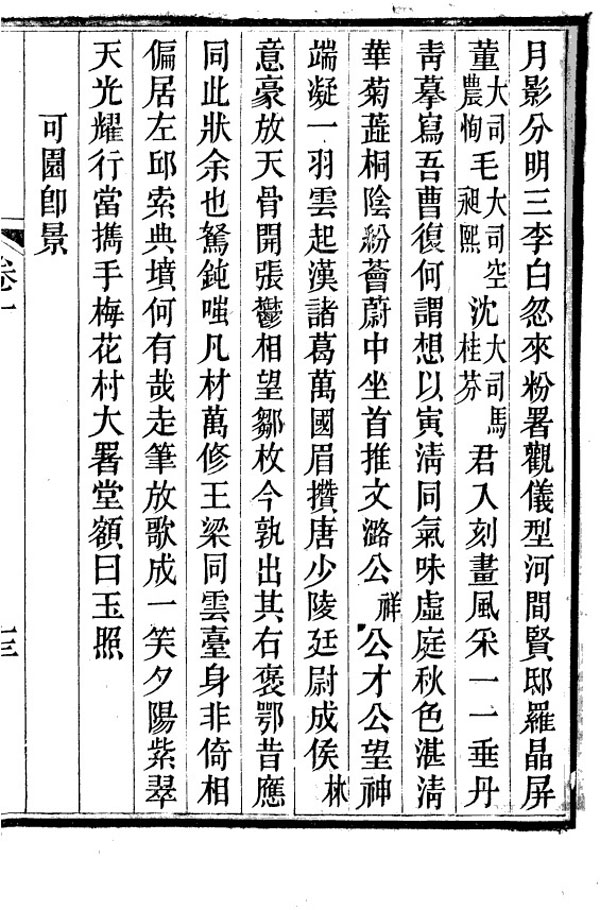 月影分明三李白忽來粉署觀儀型河間賢邸羅晶屏
董大司農恂毛大司空昶熙沈大司馬桂芬君入刻畫風采一一垂丹
靑摹寫吾曹復何謂想以寅淸同氣味虛庭秋色湛淸
華菊蕋桐陰紛薈蔚中坐首推文潞公祥公才公望神
端凝一羽雲起漢諸葛萬國眉攢唐少陵廷尉成侯林
意豪放天骨開張鬱相望鄒枚今孰出其右褒鄂昔應
同此狀余也駑鈍嗤凡材萬修王梁同雲臺身非倚相
偏居左邱索典墳何有哉走筆放歌成一笑夕陽紫翠
天光耀行當攜手梅花村大署堂額曰玉照
可園卽景
卷一
七三